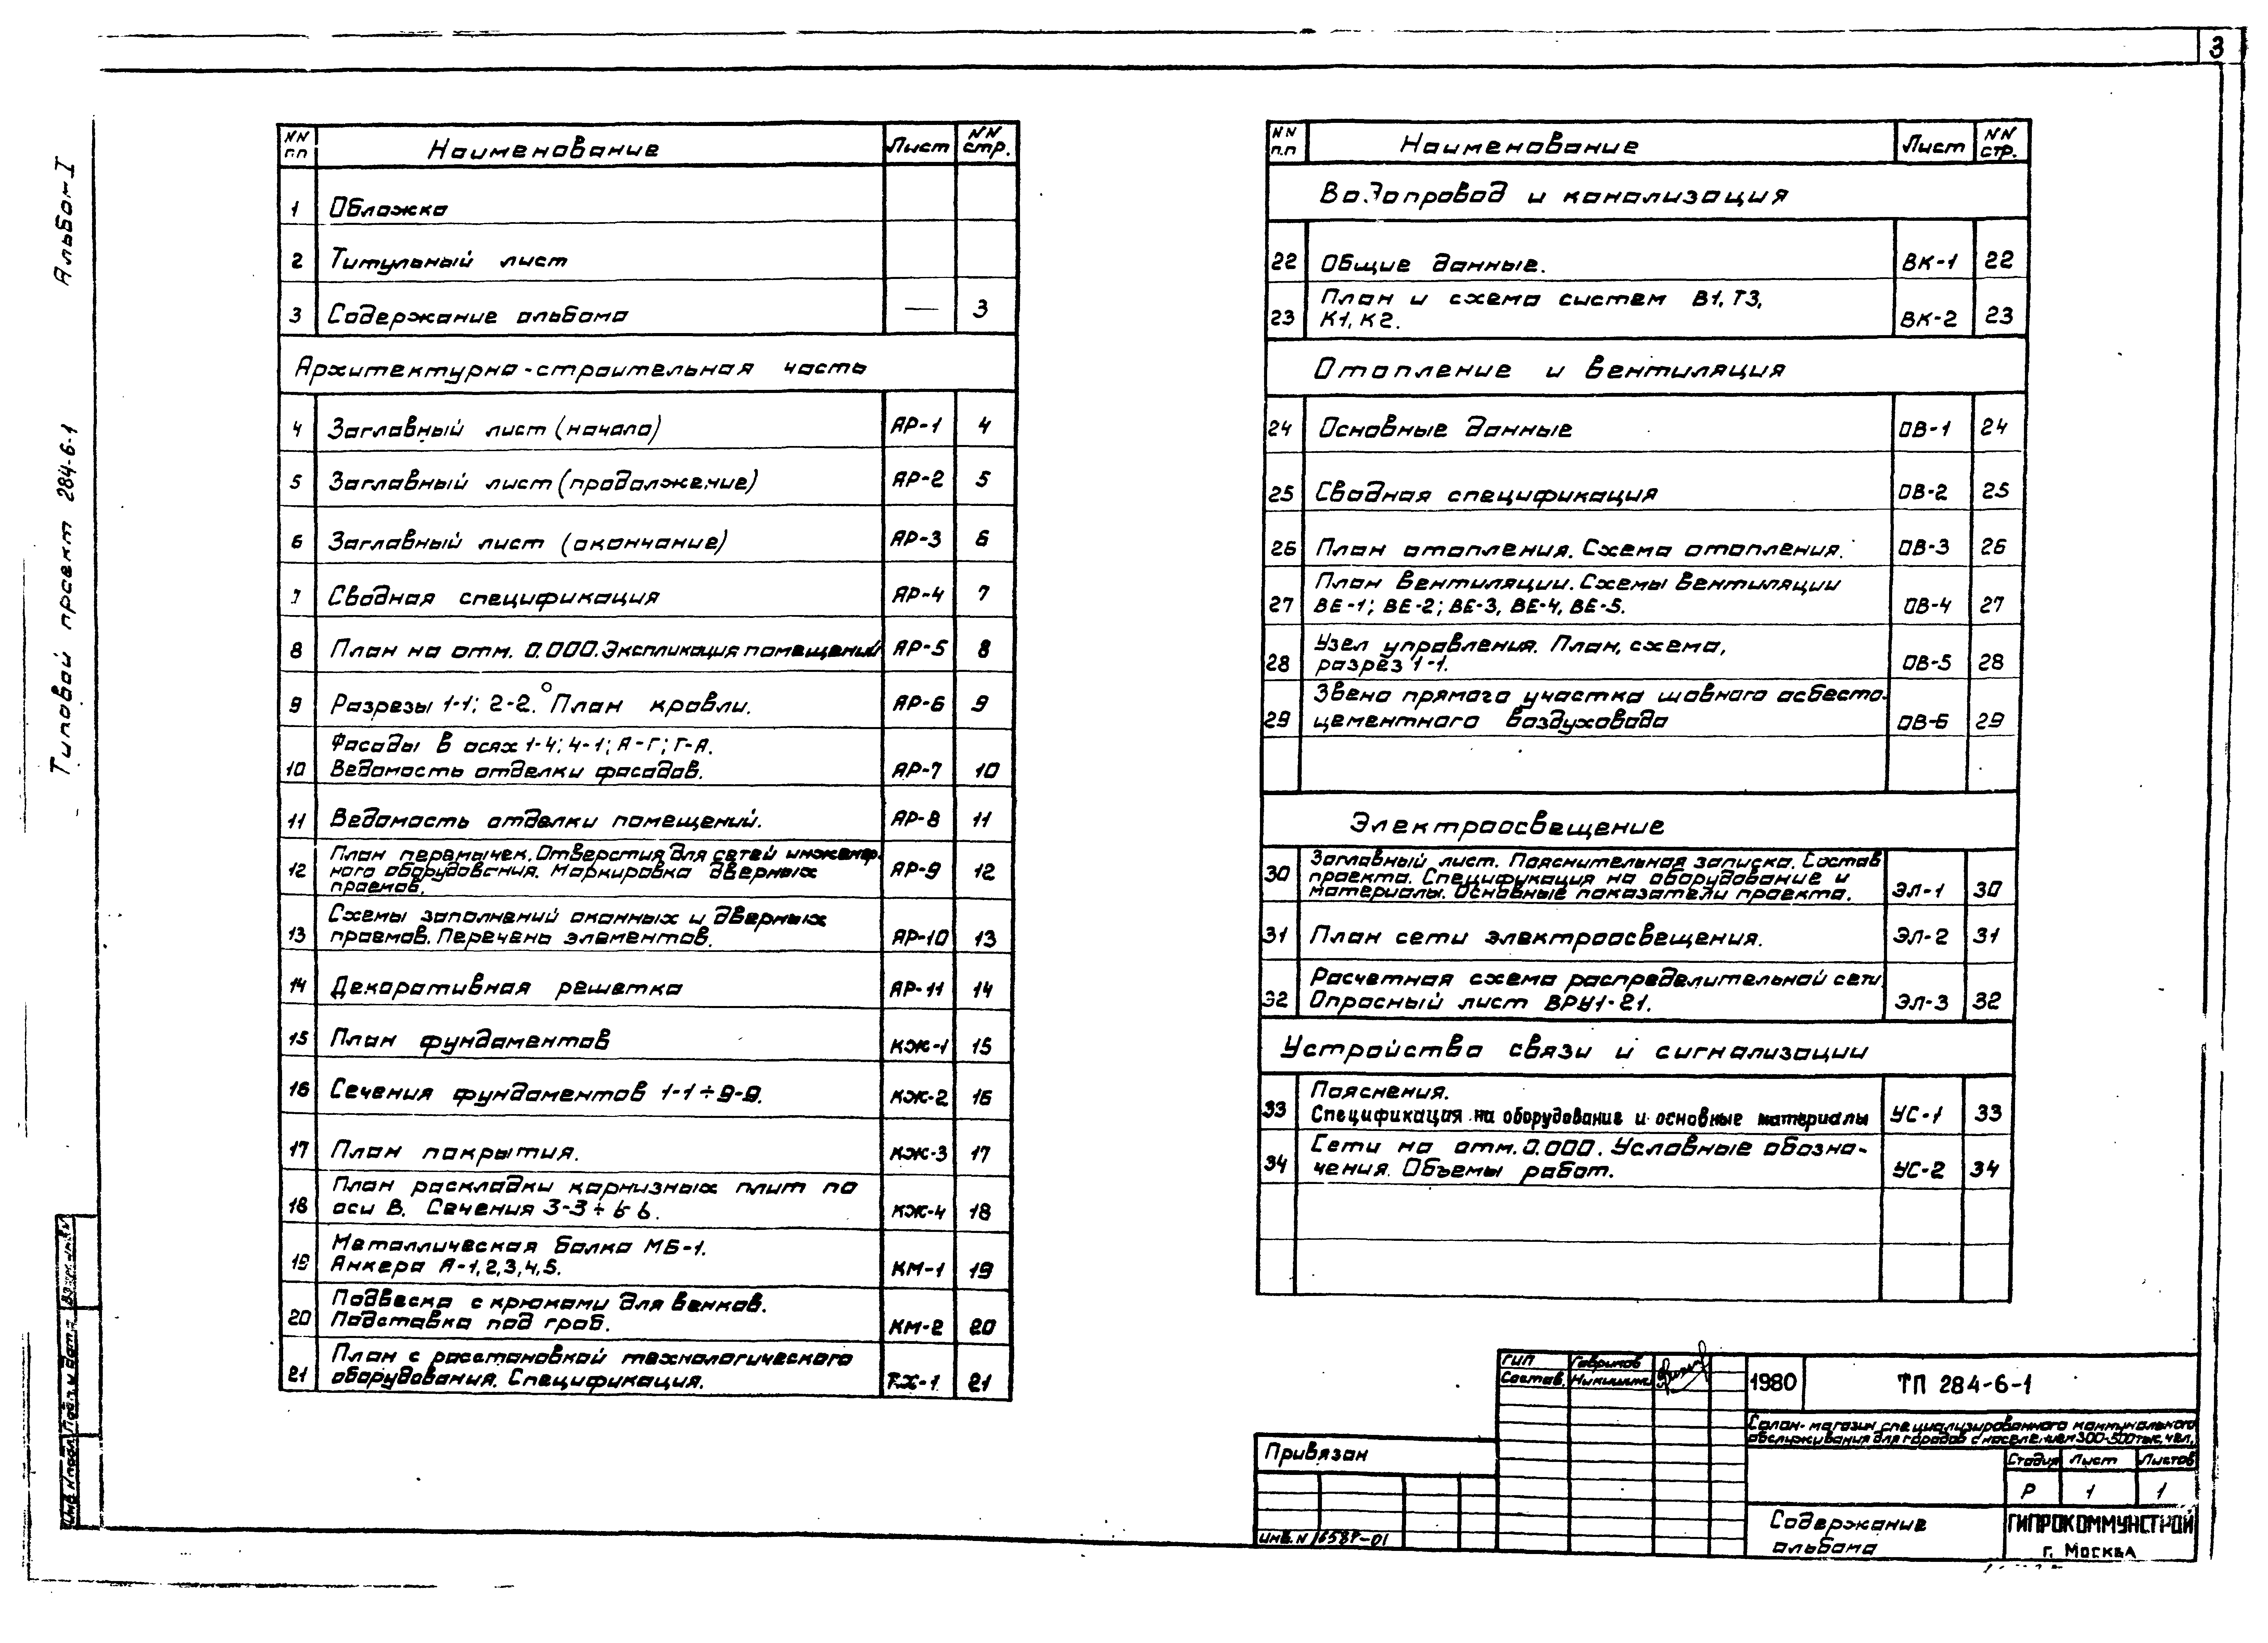 3
Альбом I
Типовой проект 284-6-1
NN п.п Наименование Лист NN стр.
1 Обложка
2 Титульный лист
3 Содержание альбома — 3
Архитектурно-строительная часть
4 Заглавный лист (начало) АР-1 4
5 Заглавный лист (продолжение) АР-2 5
6 Заглавный лист (окончание) АР-3 6
7 Сводная спецификация АР-4 7
8 План на отм. 0.000. Экспликация помещений АР-5 8
9 Разрезы 1-1; 2-2. План кровли. АР-6 9
Фасады в осях 1-4; 4-1; А-Г; Г-А.
10 Ведомость отделки фасадов. АР-7 10
11 Ведомость отделки помещений. АР-8 11
План перемычек. Отверстия для сетей инженер-
12 ного оборудования. Маркировка дверных АР-9 12
проемов.
Схемы заполнений оконных и дверных
13 проемов. Перечень элементов. АР-10 13
14 Декоративная решетка АР-11 14
15 План фундаментов КЖ-1 15
16 Сечения фундаментов 1-1÷9-9. КЖ-2 16
17 План покрытия. КЖ-3 17
План раскладки карнизных плит по
18 оси В. Сечения 3-3÷6-6. КЖ-4 18
Металлическая балка МБ-1.
19 Анкера А-1,2,3,4,5. КМ-1 19
Подвеска с крюками для венков.
20 Подставка под гроб. КМ-2 20
План с расстановкой технологического
21 оборудования. Спецификация. ТХ-1 21
NN п.п Наименование Лист NN стр.
Водопровод и канализация
22 Общие данные. ВК-1 22
План и схема систем В1, Т3,
23 К1, К2. ВК-2 23
Отопление и вентиляция
24 Основные данные ОВ-1 24
25 Сводная спецификация ОВ-2 25
26 План отопления. Схема отопления. ОВ-3 26
План вентиляции. Схемы вентиляции
27 ВЕ-1; ВЕ-2; ВЕ-3, ВЕ-4, ВЕ-5. ОВ-4 27
Узел управления. План, схема,
28 разрез 1-1. ОВ-5 28
Звено прямого участка шовного асбесто-
29 цементного воздуховода ОВ-6 29
Электроосвещение
Заглавный лист. Пояснительная записка. Состав
30 проекта. Спецификация на оборудование и ЭЛ-1 30
материалы. Основные показатели проекта.
31 План сети электроосвещения. ЭЛ-2 31
Расчетная схема распределительной сети
32 Опросный лист ВРУ1-21. ЭЛ-3 32
Устройства связи и сигнализации
Пояснения.
33 Спецификация на оборудование и основные материалы УС-1 33
Сети на отм. 0.000. Условные обозна-
34 чения. Объемы работ. УС-2 34
ГИП Гаврилов
Состав.
1980 ТП 284-6-1
Салон-магазин специализированного коммунального
обслуживания для городов с населением 300-500 тыс. чел.
Стадия Лист Листов
Р 1 1
Содержание
альбома
ГИПРОКОММУНСТРОЙ
г. Москва
Привязан
Инв. N
Инв. N подл. Подп. и дата